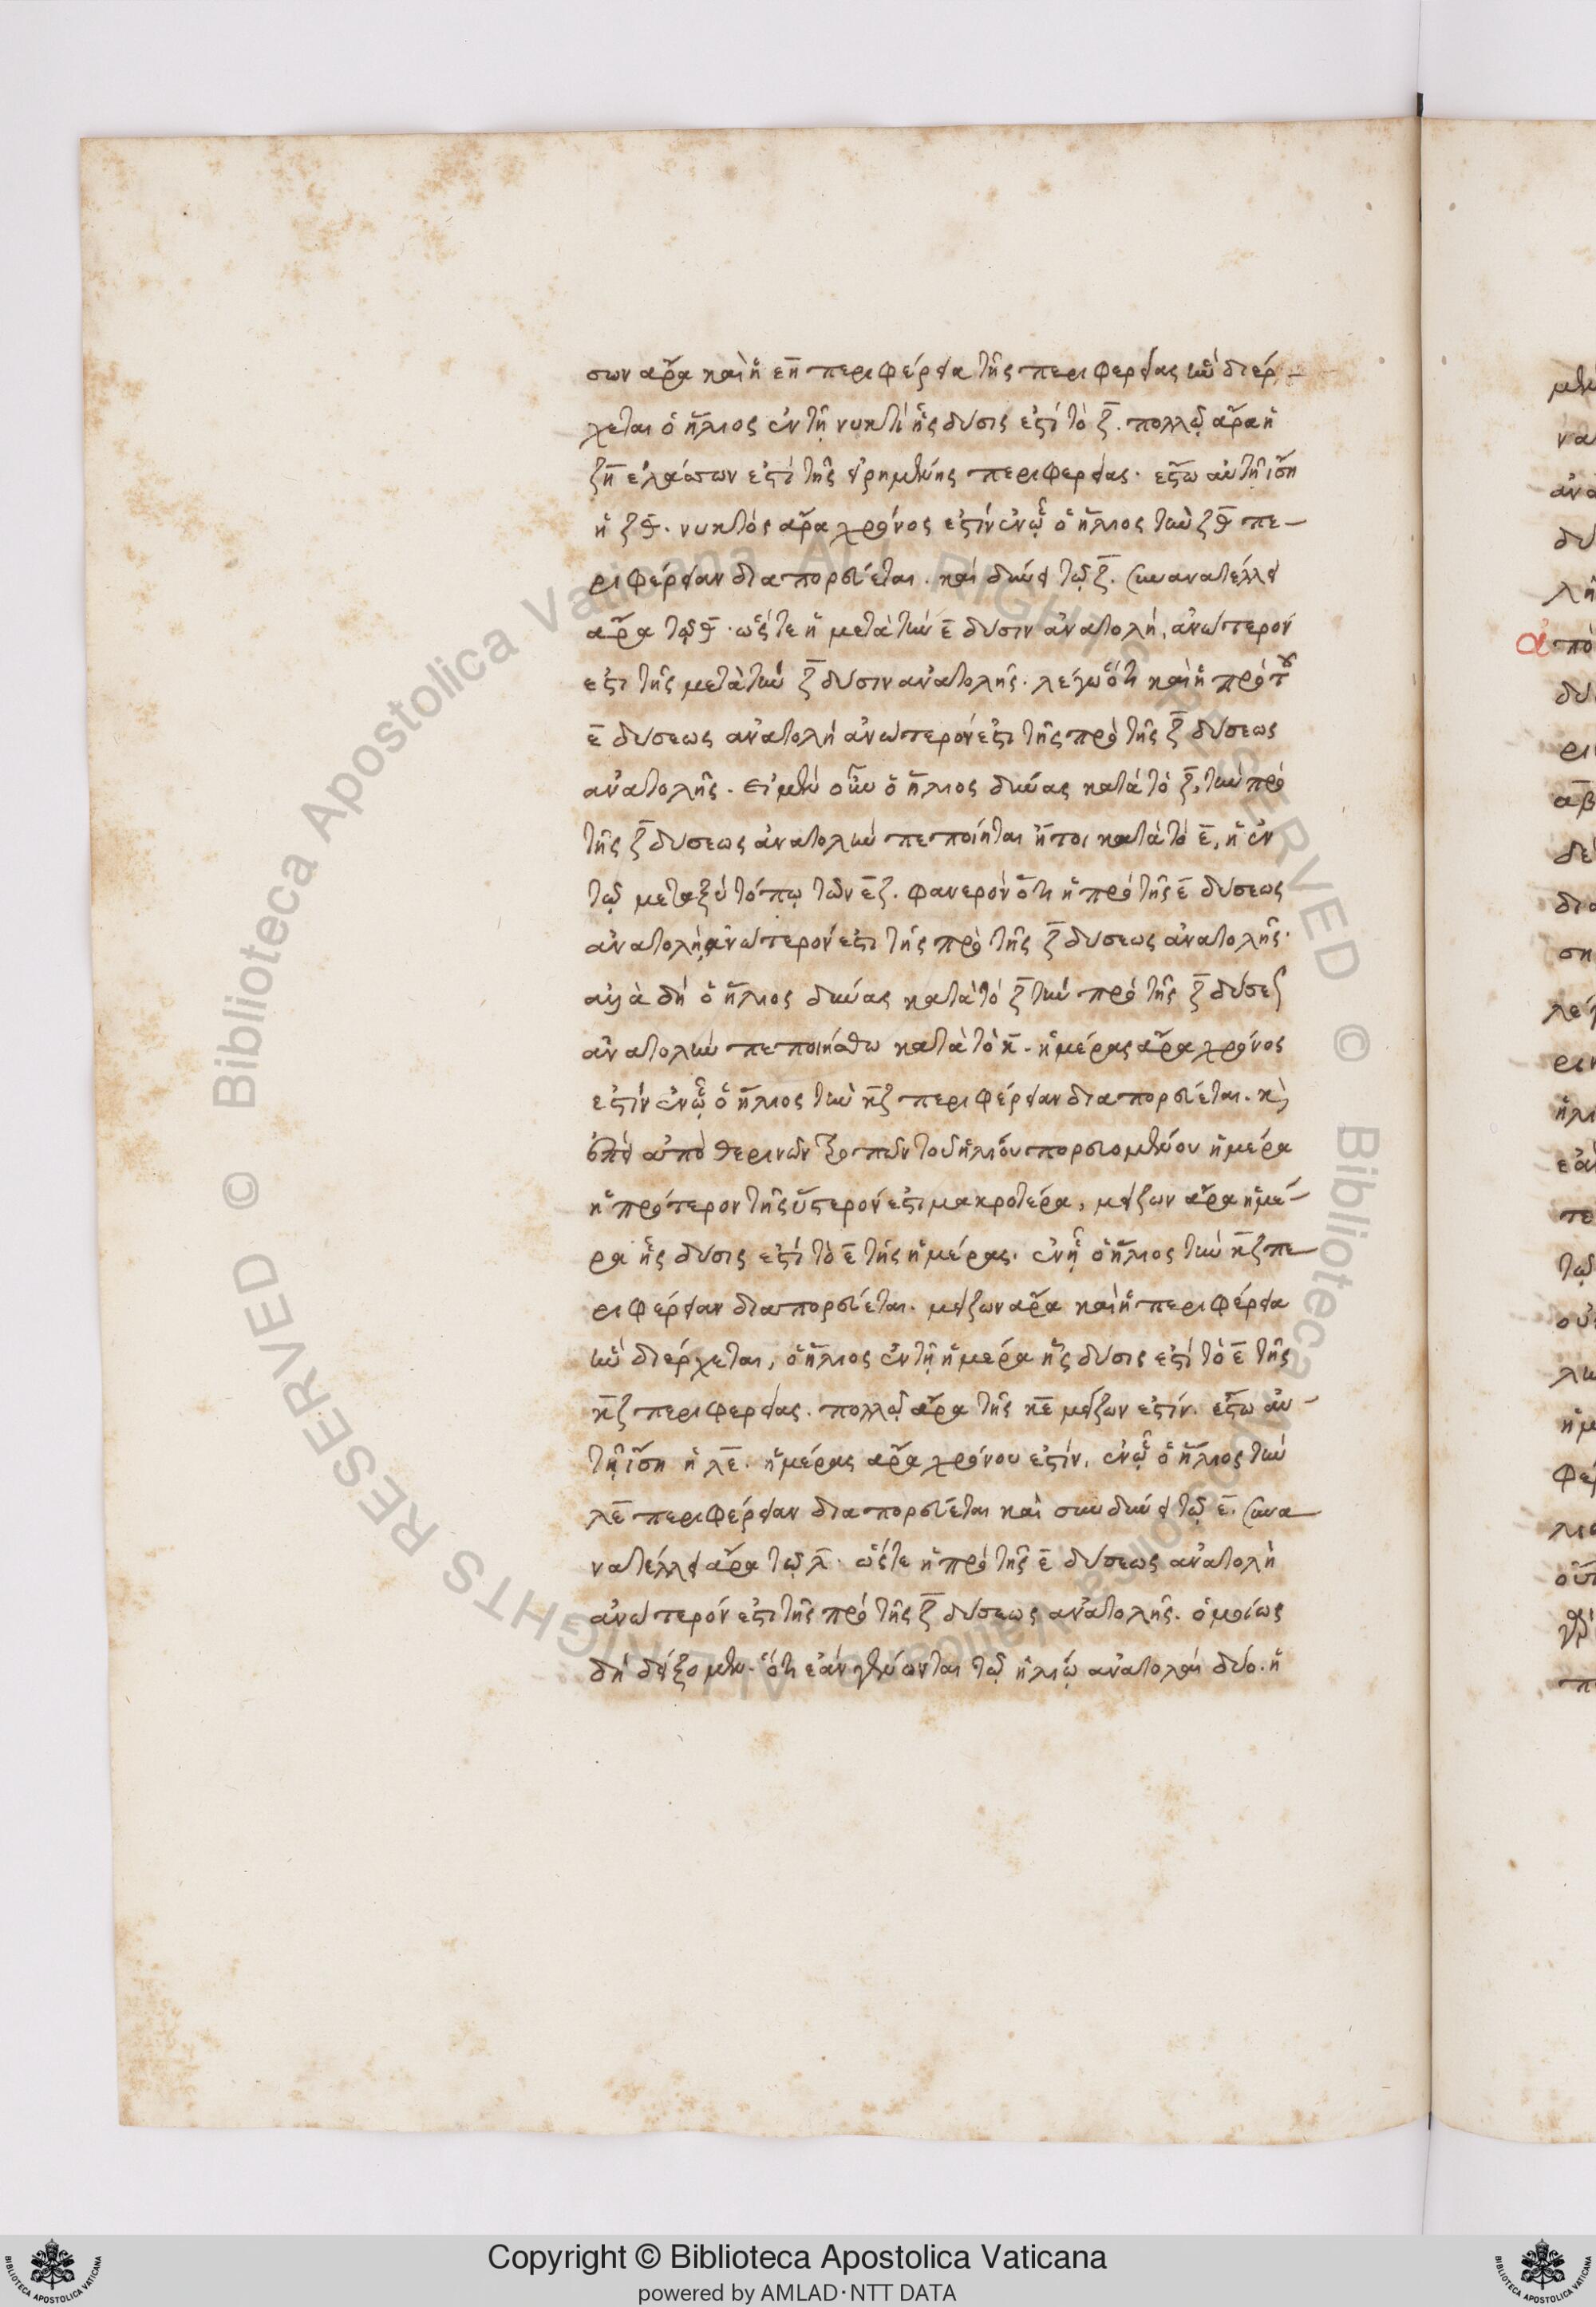 σων ἄρα καὶ ἡ εη περιφέρεια τῆς περιφερείας ἣν διέρ-
χεται ὁ ἥλιος ἐν τῇ νυκτὶ ἧς δύσις ἐστὶ τὸ ζ. πολλῷ ἄρα ἡ
ζη ἐλάσσων ἐστὶ τῆς εἰρημένης περιφερείας. ἔστω αὐτῇ ἴση
ἡ ζθ. νυκτὸς ἄρα χρόνος ἐστὶν ἐν ᾧ ὁ ἥλιος τὴν ζθ πε-
ριφέρειαν διαπορεύεται. καὶ δύνει τῷ ζ. συνανατέλλει
ἄρα τῷ θ. ὥστε ἡ μετὰ τὴν ε δύσιν ἀνατολή, ἀνώτερόν
ἐστι τῆς μετὰ τὴν ζ δύσιν ἀνατολῆς. λέγω ὅτι καὶ ἡ πρὸ τ
ε δύσεως ἀνατολὴ ἀνώτερόν ἐστι τῆς πρὸ τῆς ζ δύσεως
ἀνατολῆς. εἰ μὲν οὖν ὁ ἥλιος δύνας κατὰ τὸ ζ, τὴν πρὸ
τῆς ζ δύσεως ἀνατολὴν πεποίηται ἤτοι κατὰ τὸ ε, ἢ ἐν
τῷ μεταξὺ τόπῳ τῶν εζ. φανερὸν ὅτι ἡ πρὸ τῆς ε δύσεως
ἀνατολὴ ἀνώτερόν ἐστι τῆς πρὸ τῆς ζ δύσεως ἀνατολῆς.
ἀλλὰ δὴ ὁ ἥλιος δύνας κατὰ τὸ ζ τὴν πρὸ τῆς ζ δύσεως
ἀνατολὴν πεποιήσθω κατὰ τὸ κ. ἡμέρας ἄρα χρόνος
ἐστὶν ἐν ᾧ ὁ ἥλιος τὴν κζ περιφέρειαν διαπορεύεται. κ
ἐπεὶ ἀπὸ θερινῶν τροπῶν τοῦ ἡλίου πορευομένου ἡμέρα
ἡ πρότερον τῆς ὕστερόν ἐστι μακροτέρα, μείζων ἄρα ἡμέ-
ρα ἧς δύσις ἐστὶ τὸ ε τῆς ἡμέρας. ἐν ᾗ ὁ ἥλιος τὴν κζ πε-
ριφέρειαν διαπορεύεται. μείζων ἄρα καὶ ἡ περιφέρεια
ἣν διέρχεται, ὁ ἥλιος ἐν τῇ ἡμέρα ἧς δύσις ἐστὶ τὸ ε τῆς
κζ περιφερείας. πολλῷ ἄρα τῆς κε μείζων ἐστίν. ἔστω αὐ-
τῇ ἴση ἡ λε. ἡμέρας ἄρα χρόνου ἐστίν, ἐν ᾧ ὁ ἥλιος τὴν
λε περιφέρειαν διαπορεύεται καὶ συνδύνει τῷ ε. συνα-
νατέλλει ἄρα τῷ λ. ὥστε ἡ πρὸ τῆς ε δύσεως ἀνατολὴ
ἀνώτερόν ἐστι τῆς πρὸ τῆς ζ δύσεως ἀνατολῆς. ὁμοίως
δὴ δείξομεν. ὅτι ἐὰν γένωνται τῷ ἡλίῳ ἀνατολαὶ δύο. ἡ
Copyright © Biblioteca Apostolica Vaticana
powered by AMLAD·NTT DATA